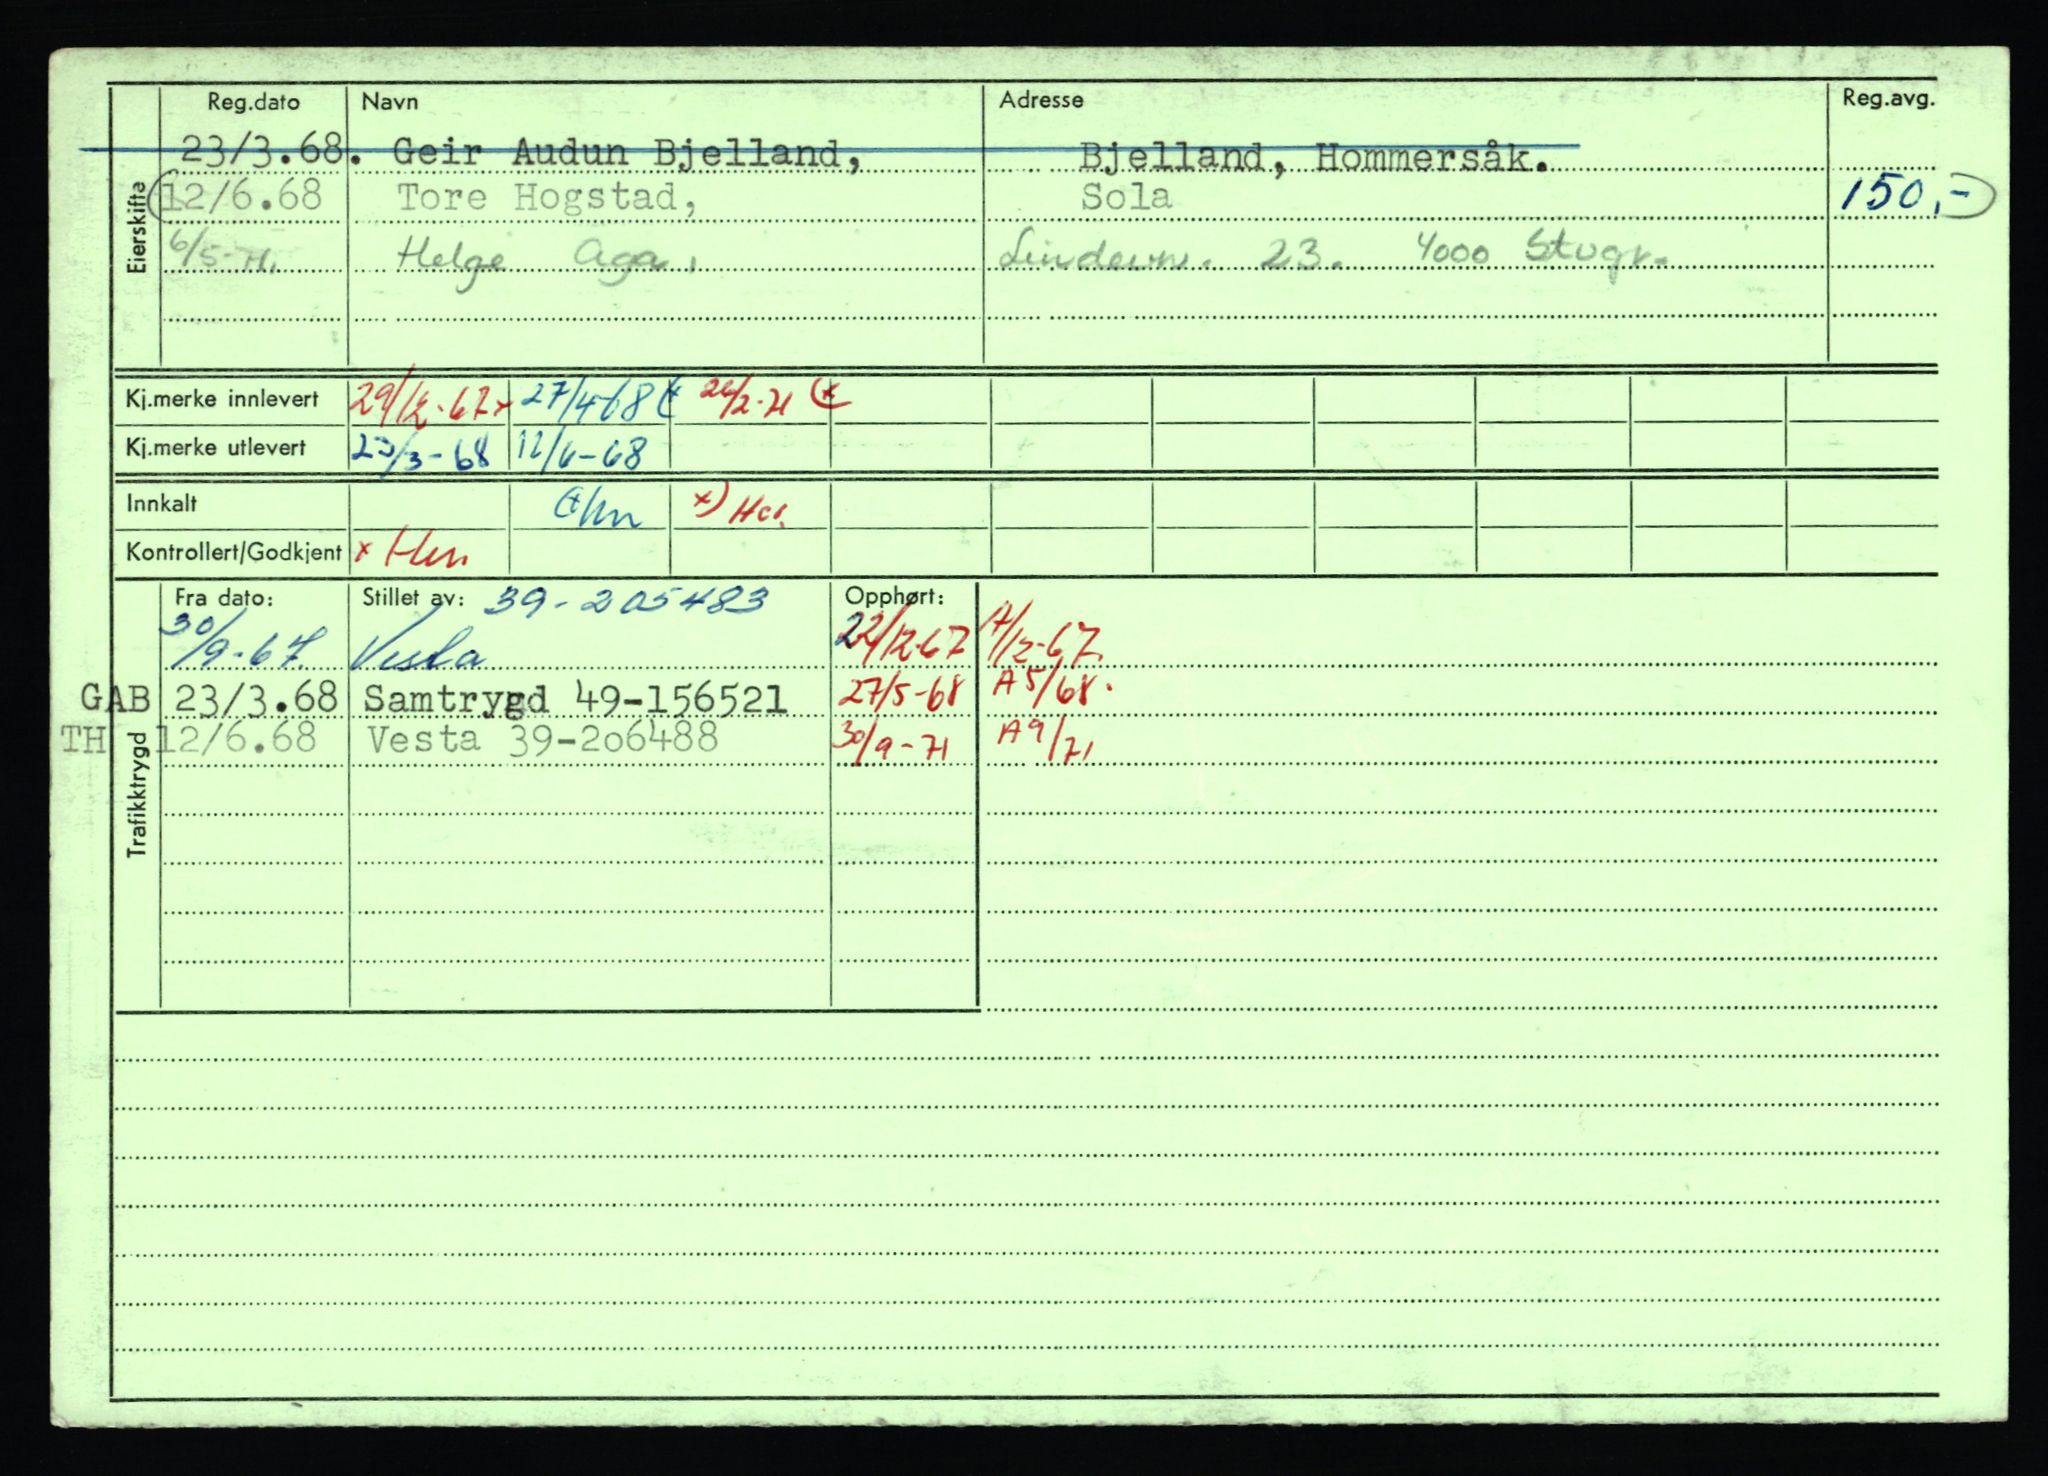 Reg.dato Navn Adresse Reg.avg.
23/3.68. Geir Audun Bjelland, Bjelland, Hommersåk.
12/6.68 Tore Hogstad, Sola 150,-
6/5-71. Helge Aga, 23. 4000 Stvgr.
Eierskifte
Kj.merke innlevert 29/12-67x 27/4-68 (x 26/2-71 (x
Kj.merke utlevert 23/3-68 12/6-68
Innkalt (x x)
Kontrollert/Godkjent x
Fra dato: Stillet av: 39-205483 Opphørt:
30/9-67. Vesta 22/12-67 A/12-67.
GAB 23/3.68 Samtrygd 49-156521 27/5-68 A5/68.
TH 12/6.68 Vesta 39-206488 30/9-71 A9/71
Trafikktrygd